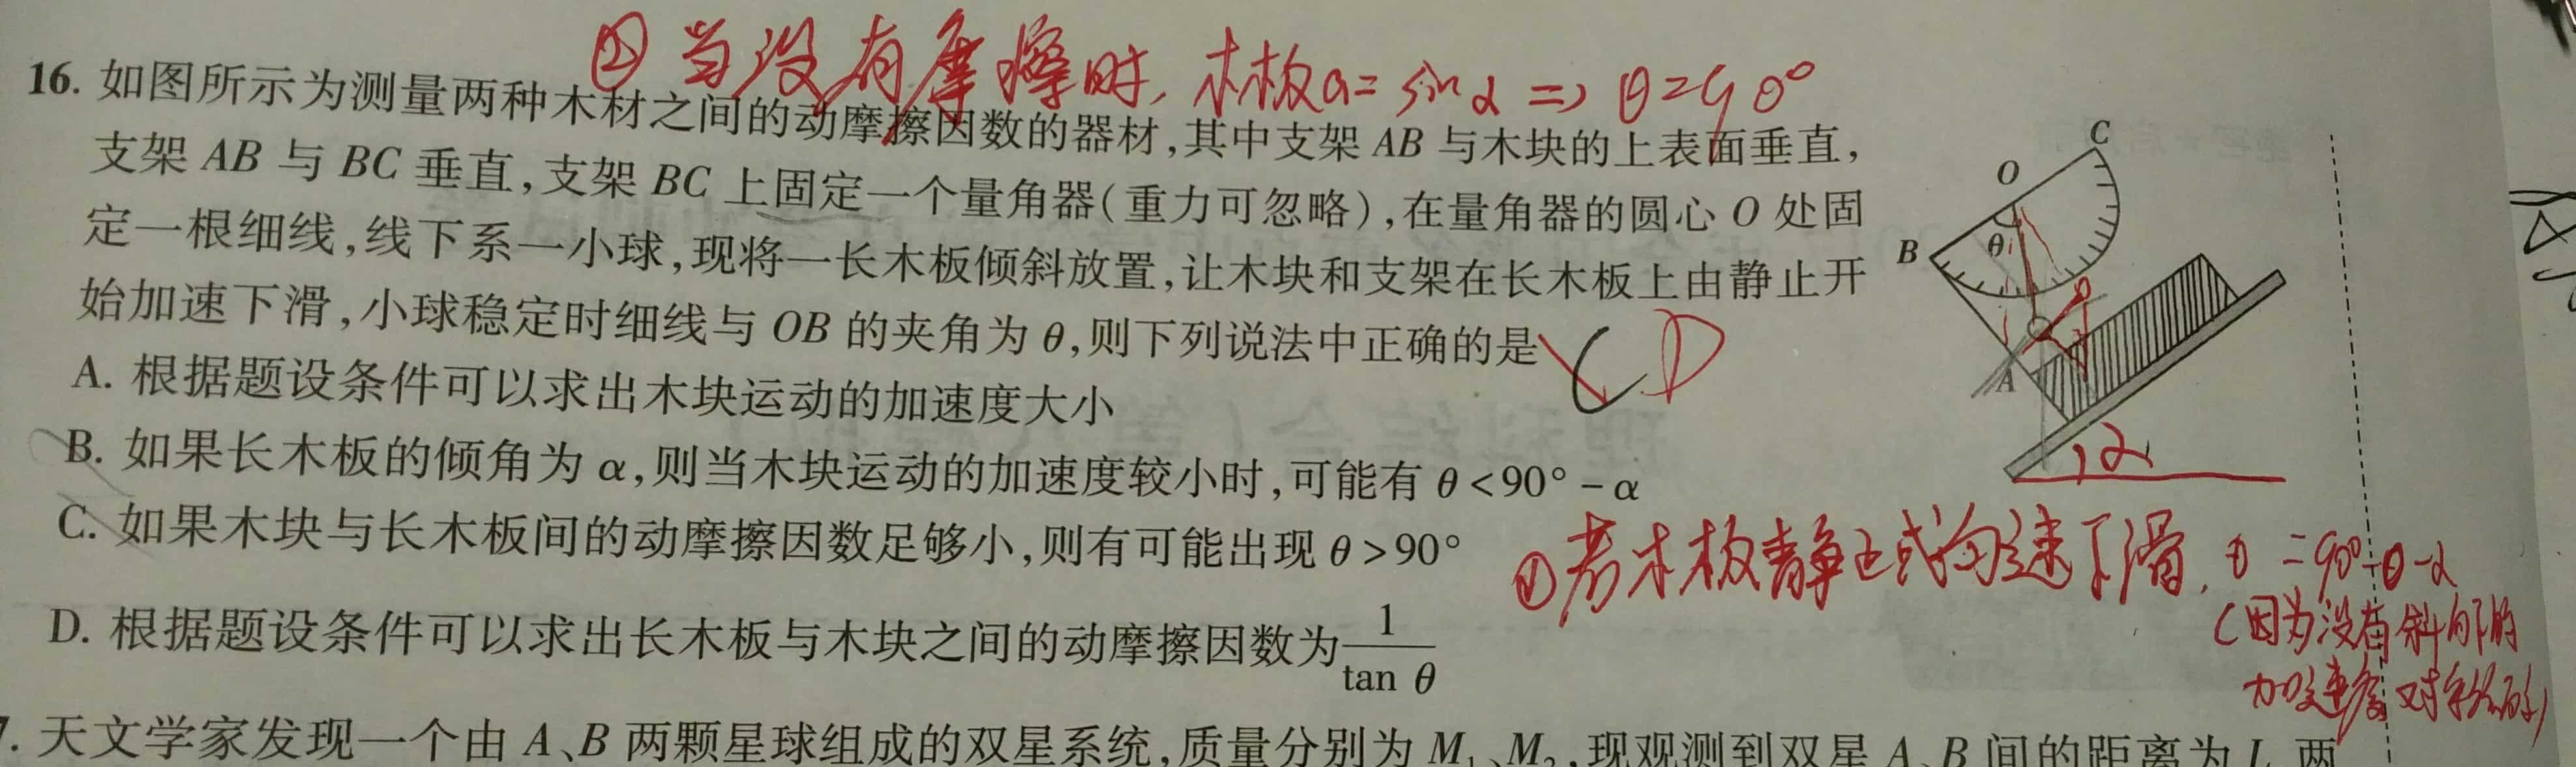 ②当没有摩擦时,木板a=sinα⇒θ=90°
16. 如图所示为测量两种木材之间的动摩擦因数的器材,其中支架 AB 与木块的上表面垂直,
支架 AB 与 BC 垂直,支架 BC 上固定一个量角器(重力可忽略),在量角器的圆心 O 处固
定一根细线,线下系一小球,现将一长木板倾斜放置,让木块和支架在长木板上由静止开
始加速下滑,小球稳定时细线与 OB 的夹角为 θ,则下列说法中正确的是
C D
A. 根据题设条件可以求出木块运动的加速度大小
B. 如果长木板的倾角为 α,则当木块运动的加速度较小时,可能有 θ<90°-α
C. 如果木块与长木板间的动摩擦因数足够小,则有可能出现 θ>90°
D. 根据题设条件可以求出长木板与木块之间的动摩擦因数为 1/tan θ
C
O
B
θ
A
α
①若木板静止或匀速下滑,
(因为没有斜向下的
加速度
7. 天文学家发现一个由 A、B 两颗星球组成的双星系统,质量分别为 M₁、M₂,现观测到双星 A、B 间的距离为 L,两